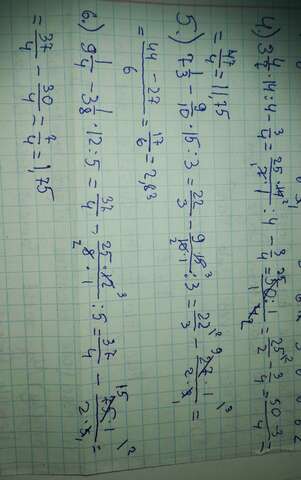 4.) 3 4/7 · 14 : 4 - 3/4 = 25 · 14²/7 · 1 : 4 - 3/4 = 25 50 · 1/1 · 4 2 = 25²/2 - 3/4 = 50 - 3/4 =
= 47/4 = 11,75
5.) 7 1/3 - 9/10 · 15 : 3 = 22/3 - 9 · 15³/2 10 · 1 : 3 = 22²/3 - 9 27 · 1³/2 · 3 1 =
= 44 - 27/6 = 17/6 = 2,83
6.) 9 1/4 - 3 1/8 · 12 : 5 = 37/4 - 25 · 12³/2 8 · 1 : 5 = 37/4 - 15 75 · 1²/2 · 5 1 =
= 37/4 - 30/4 = 7/4 = 1,75